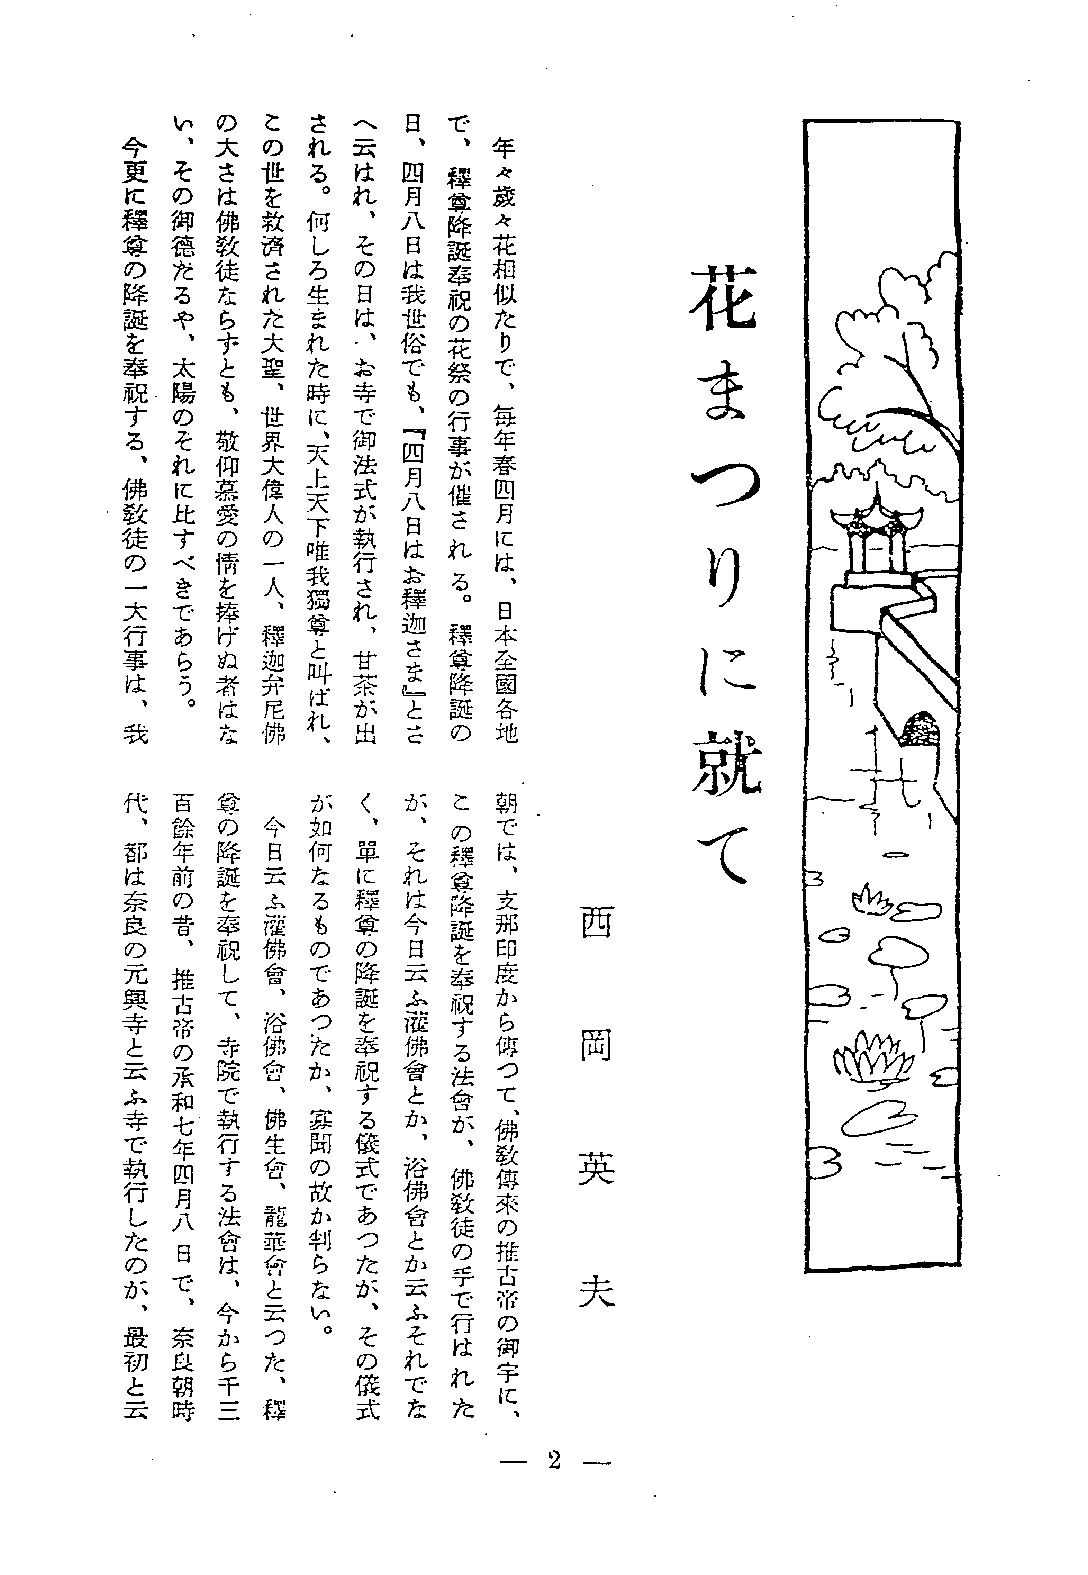 花まつりに就て
西岡英夫
年々歲々花相似たりで、每年春四月には、日本全國各地
で、釋尊降誕奉祝の花祭の行事が催される。釋尊降誕の
日、四月八日は我世俗でも、『四月八日はお釋迦さま』とさ
へ云はれ、その日は、お寺で御法式が執行され、甘茶が出
される。何しろ生まれた時に、天上天下唯我獨尊と叫ばれ、
この世を救濟された大聖、世界大偉人の一人、釋迦弁尼佛
の大さは佛敎徒ならずとも、敬仰慕愛の情を捧げぬ者はな
い、その御德たるや、太陽のそれに比すべきであらう。
今更に釋尊の降誕を奉祝する、佛敎徒の一大行事は、我
朝では、支那印度から傳つて、佛敎傳來の推古帝の御宇に、
この釋尊降誕を奉祝する法會が、佛敎徒の手で行はれた
が、それは今日云ふ灌佛會とか、浴佛會とか云ふそれでな
く、單に釋尊の降誕を奉祝する儀式であつたが、その儀式
が如何なるものであつたか、寡聞の故か判らない。
今日云ふ灌佛會、浴佛會、佛生會、龍華會と云つた、釋
尊の降誕を奉祝して、寺院で執行する法會は、今から千三
百餘年前の昔、推古帝の承和七年四月八日で、奈良朝時
代、都は奈良の元興寺と云ふ寺で執行したのが、最初と云
— 2 —